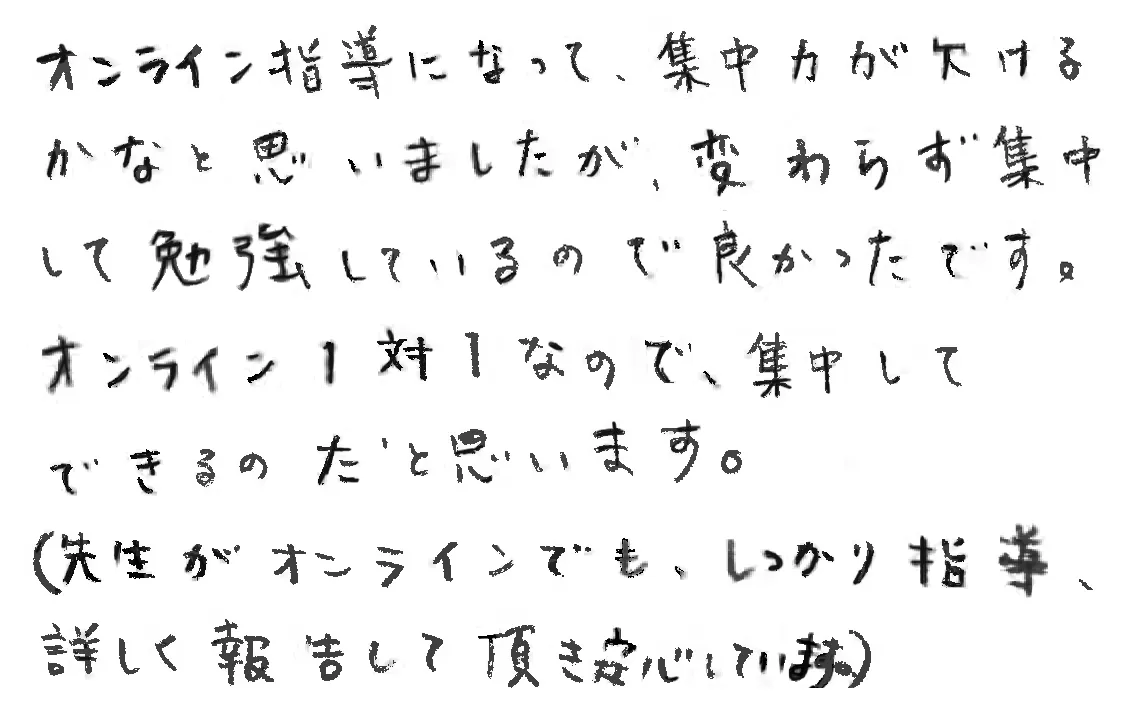 オンライン指導になって、集中力が欠ける
かなと思いましたが、変わらず集中
して勉強しているので良かったです。
オンライン1対1なので、集中して
できるのだと思います。
(先生がオンラインでも、しっかり指導、
詳しく報告して頂き安心しています。)